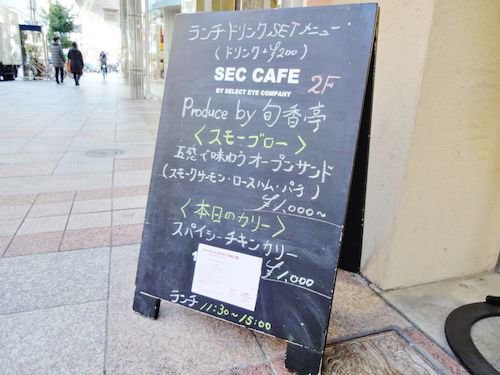 ランチドリンクSETメニュー
(ドリンク+¥200)
SEC CAFE 2F
BY SELECT EYE COMPANY
Produce by 旬香亭
<スモーブロー>
五感で味わうオープンサンド
(スモークサーモン・ロースハム・パテ)
¥1,000~
<本日のカリー>
スパイシーチキンカリー
¥1,000
ランチ 11:30~15:00